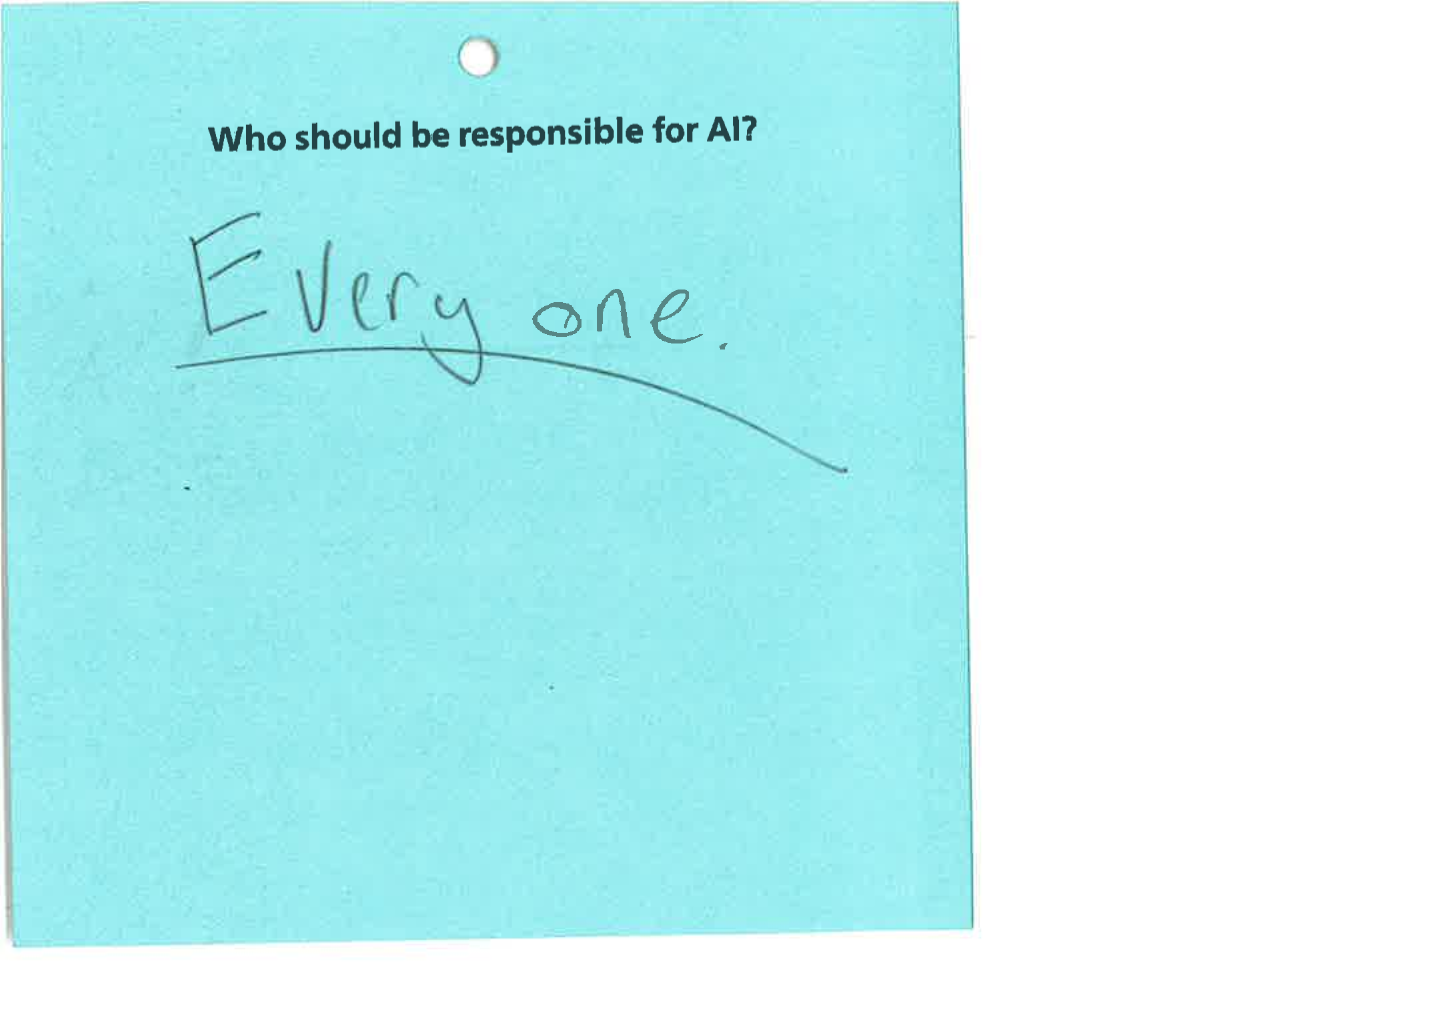 Who should be responsible for AI?
Every one.